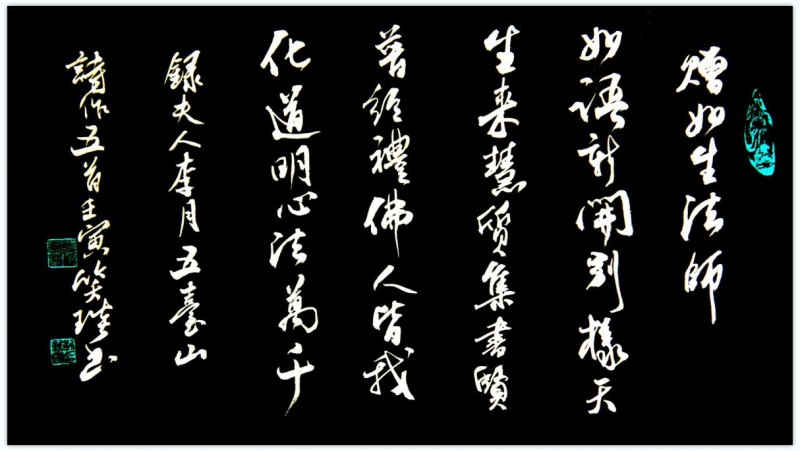 贈如生法師
如語新開別樣天
生來慧質集書賢
曾經禮佛人皆我
化道明心法萬千
錄夫人李月五臺山
詩作五首壬寅笑書